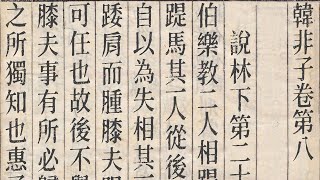 韓非子卷第八
說林下第二十
伯樂教二人相踶
踶馬其一人從後
自以為失相其一
踒肩而腫膝夫踶
可任也故後不舉
膝夫事有所必歸
之所獨知也惠子